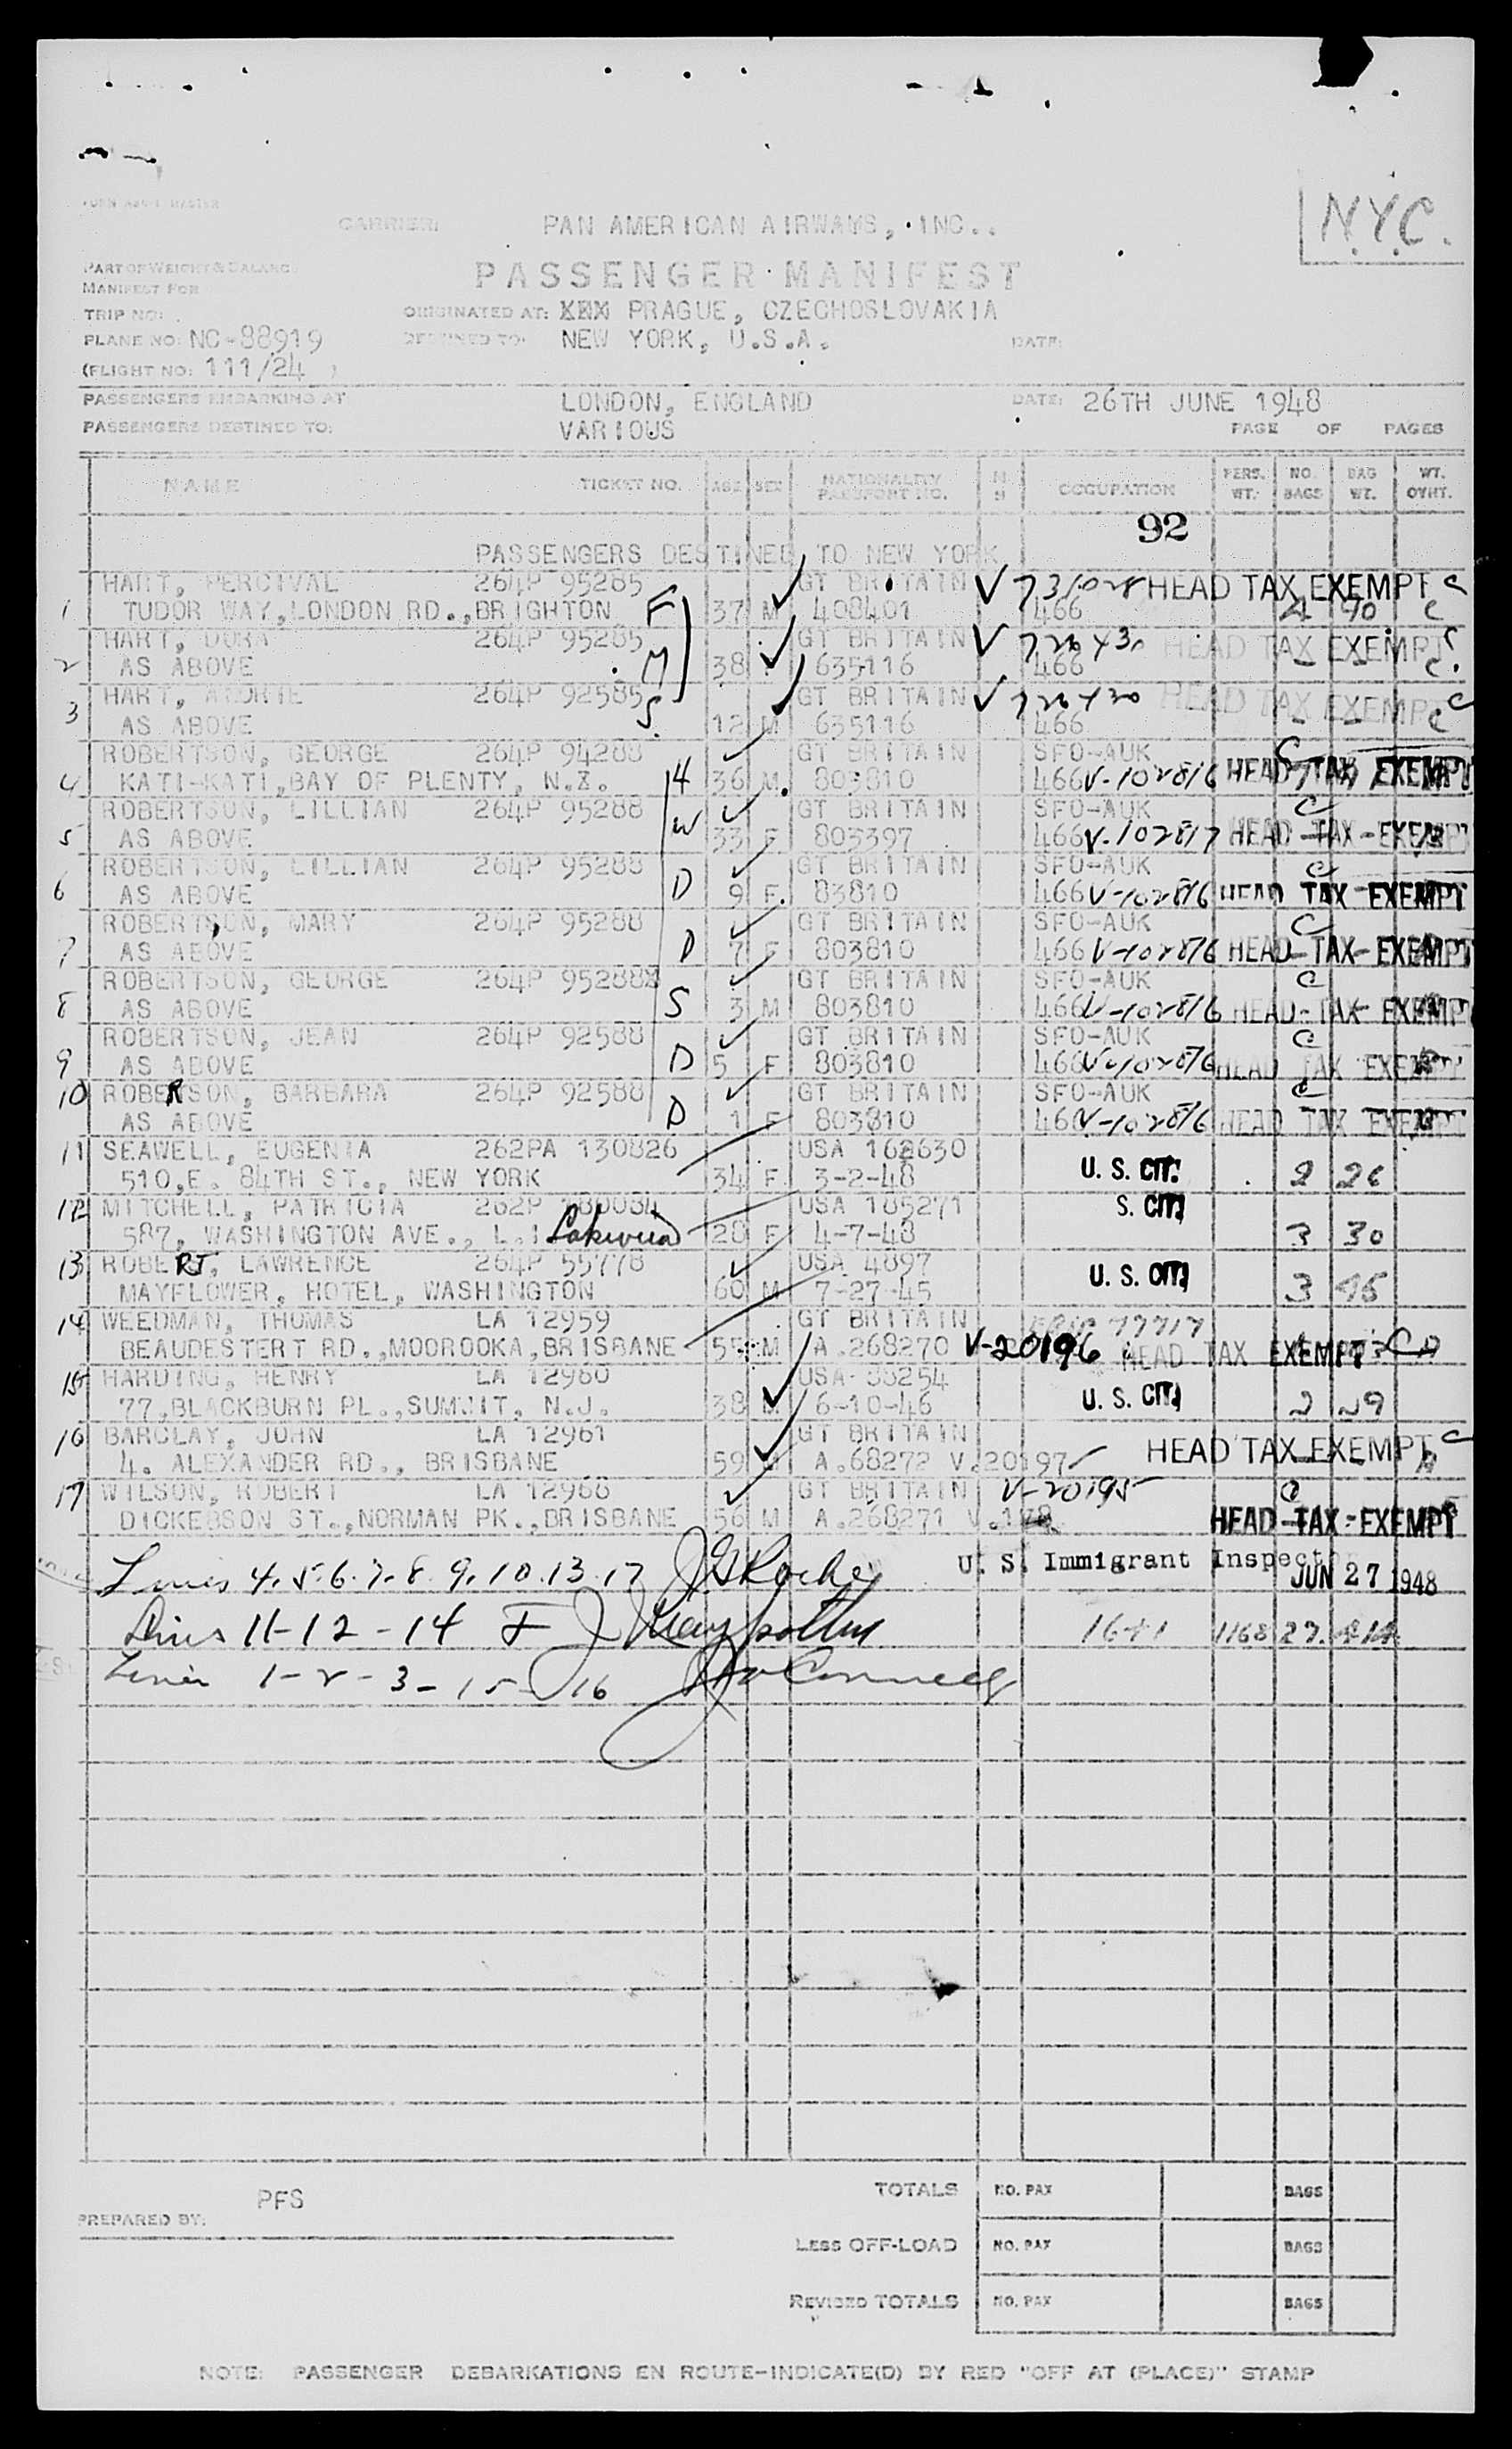 N.Y.C.
CARRIER: PAN AMERICAN AIRWAYS, INC..
PART OF WEIGHT & BALANCE
PASSENGER MANIFEST
MANIFEST FOR
TRIP NO: ORIGINATED AT: XXX PRAGUE, CZECHOSLOVAKIA
PLANE NO: NC-88919 DESTINED TO: NEW YORK, U.S.A. DATE:
(FLIGHT NO: 111/24 )
PASSENGERS EMBARKING AT LONDON, ENGLAND DATE: 26TH JUNE 1948
PASSENGERS DESTINED TO: VARIOUS PAGE OF PAGES
NAME TICKET NO. AGE SEX NATIONALITY PASSPORT NO. OCCUPATION PERS. WT. NO. BAGS BAG WT. WT. OVHT.
92
PASSENGERS DESTINED TO NEW YORK
HART, PERCIVAL 264P 95285 GT BRITAIN V HEAD TAX EXEMPT C
1 TUDOR WAY, LONDON RD., BRIGHTON F 37 M 408401 466 90 C
HART, DORA 264P 95285 GT BRITAIN V HEAD TAX EXEMPT
2 AS ABOVE M 38 635116 466 C
HART, 264P 92585 GT BRITAIN V HEAD TAX EXEMPT C
3 AS ABOVE S. 12 M 635116 466 C
ROBERTSON, GEORGE 264P 94288 GT BRITAIN SFO-AUK
4 KATI-KATI, BAY OF PLENTY, N.Z. H 36 M. 803810 466 V-102816 HEAD TAX EXEMPT
ROBERTSON, LILLIAN 264P 95288 GT BRITAIN SFO-AUK C
5 AS ABOVE W 33 F 803397 466 V-102817 HEAD-TAX-EXEMPT
ROBERTSON, LILLIAN 264P 95288 GT BRITAIN SFO-AUK C
6 AS ABOVE D 9 F. 83810 466 V-102816 HEAD TAX-EXEMPT
ROBERTSON, MARY 264P 95288 GT BRITAIN SFO-AUK C
7 AS ABOVE D 7 F 803810 466 V-102816 HEAD-TAX-EXEMPT
ROBERTSON, GEORGE 264P 95288X GT BRITAIN SFO-AUK C
8 AS ABOVE S 3 M 803810 466 V-102816 HEAD-TAX-EXEMPT
ROBERTSON, JEAN 264P 92588 GT BRITAIN SFO-AUK C
9 AS ABOVE D 5 F 803810 466 V-102816 HEAD TAX EXEMPT
10 ROBERTSON, BARBARA 264P 92588 GT BRITAIN SFO-AUK C
AS ABOVE D 1 F 803810 466 V-102816 HEAD TAX EXEMPT
11 SEAWELL, EUGENIA 262PA 130826 USA 162630
510, E. 84TH ST., NEW YORK 34 F 3-2-48 U. S. CIT. 2 26
12 MITCHELL, PATRICIA 262P USA 185271 S. CIT.
587, WASHINGTON AVE., L.I. Lakewood 28 F 4-7-48 3 30
13 ROBERT, LAWRENCE 264P 55778 USA 4897
MAYFLOWER, HOTEL, WASHINGTON 60 M 7-27-45 U. S. CIT. 3 45
14 WEEDMAN, THOMAS LA 12959 GT BRITAIN
BEAUDESTERT RD., MOOROOKA, BRISBANE 55 M A.268270 V-20196 HEAD TAX EXEMPT
15 HARDING, HENRY LA 12960 USA
77, BLACKBURN PL., SUMMIT, N.J. 38 M 6-10-46 U. S. CIT. 2 29
16 BARCLAY, JOHN LA 12961 GT BRITAIN HEAD TAX EXEMPT C
4. ALEXANDER RD., BRISBANE 59 A.68272 V.20197
17 WILSON, ROBERT LA 12968 GT BRITAIN V-20195 C
DICKERSON ST., NORMAN PK., BRISBANE 56 M A.268271 HEAD-TAX-EXEMPT
Lines 4.5.6.7.8.9.10.13.17 U. S. Immigrant Inspector JUN 27 1948
Lines 11-12-14 16+1 1168 27.
Lines 1-2-3-15-16
TOTALS NO. PAX BAGS
PFS
PREPARED BY:
LESS OFF-LOAD NO. PAX BAGS
REVISED TOTALS NO. PAX BAGS
NOTE: PASSENGER DEBARKATIONS EN ROUTE-INDICATE(D) BY RED "OFF AT (PLACE)" STAMP